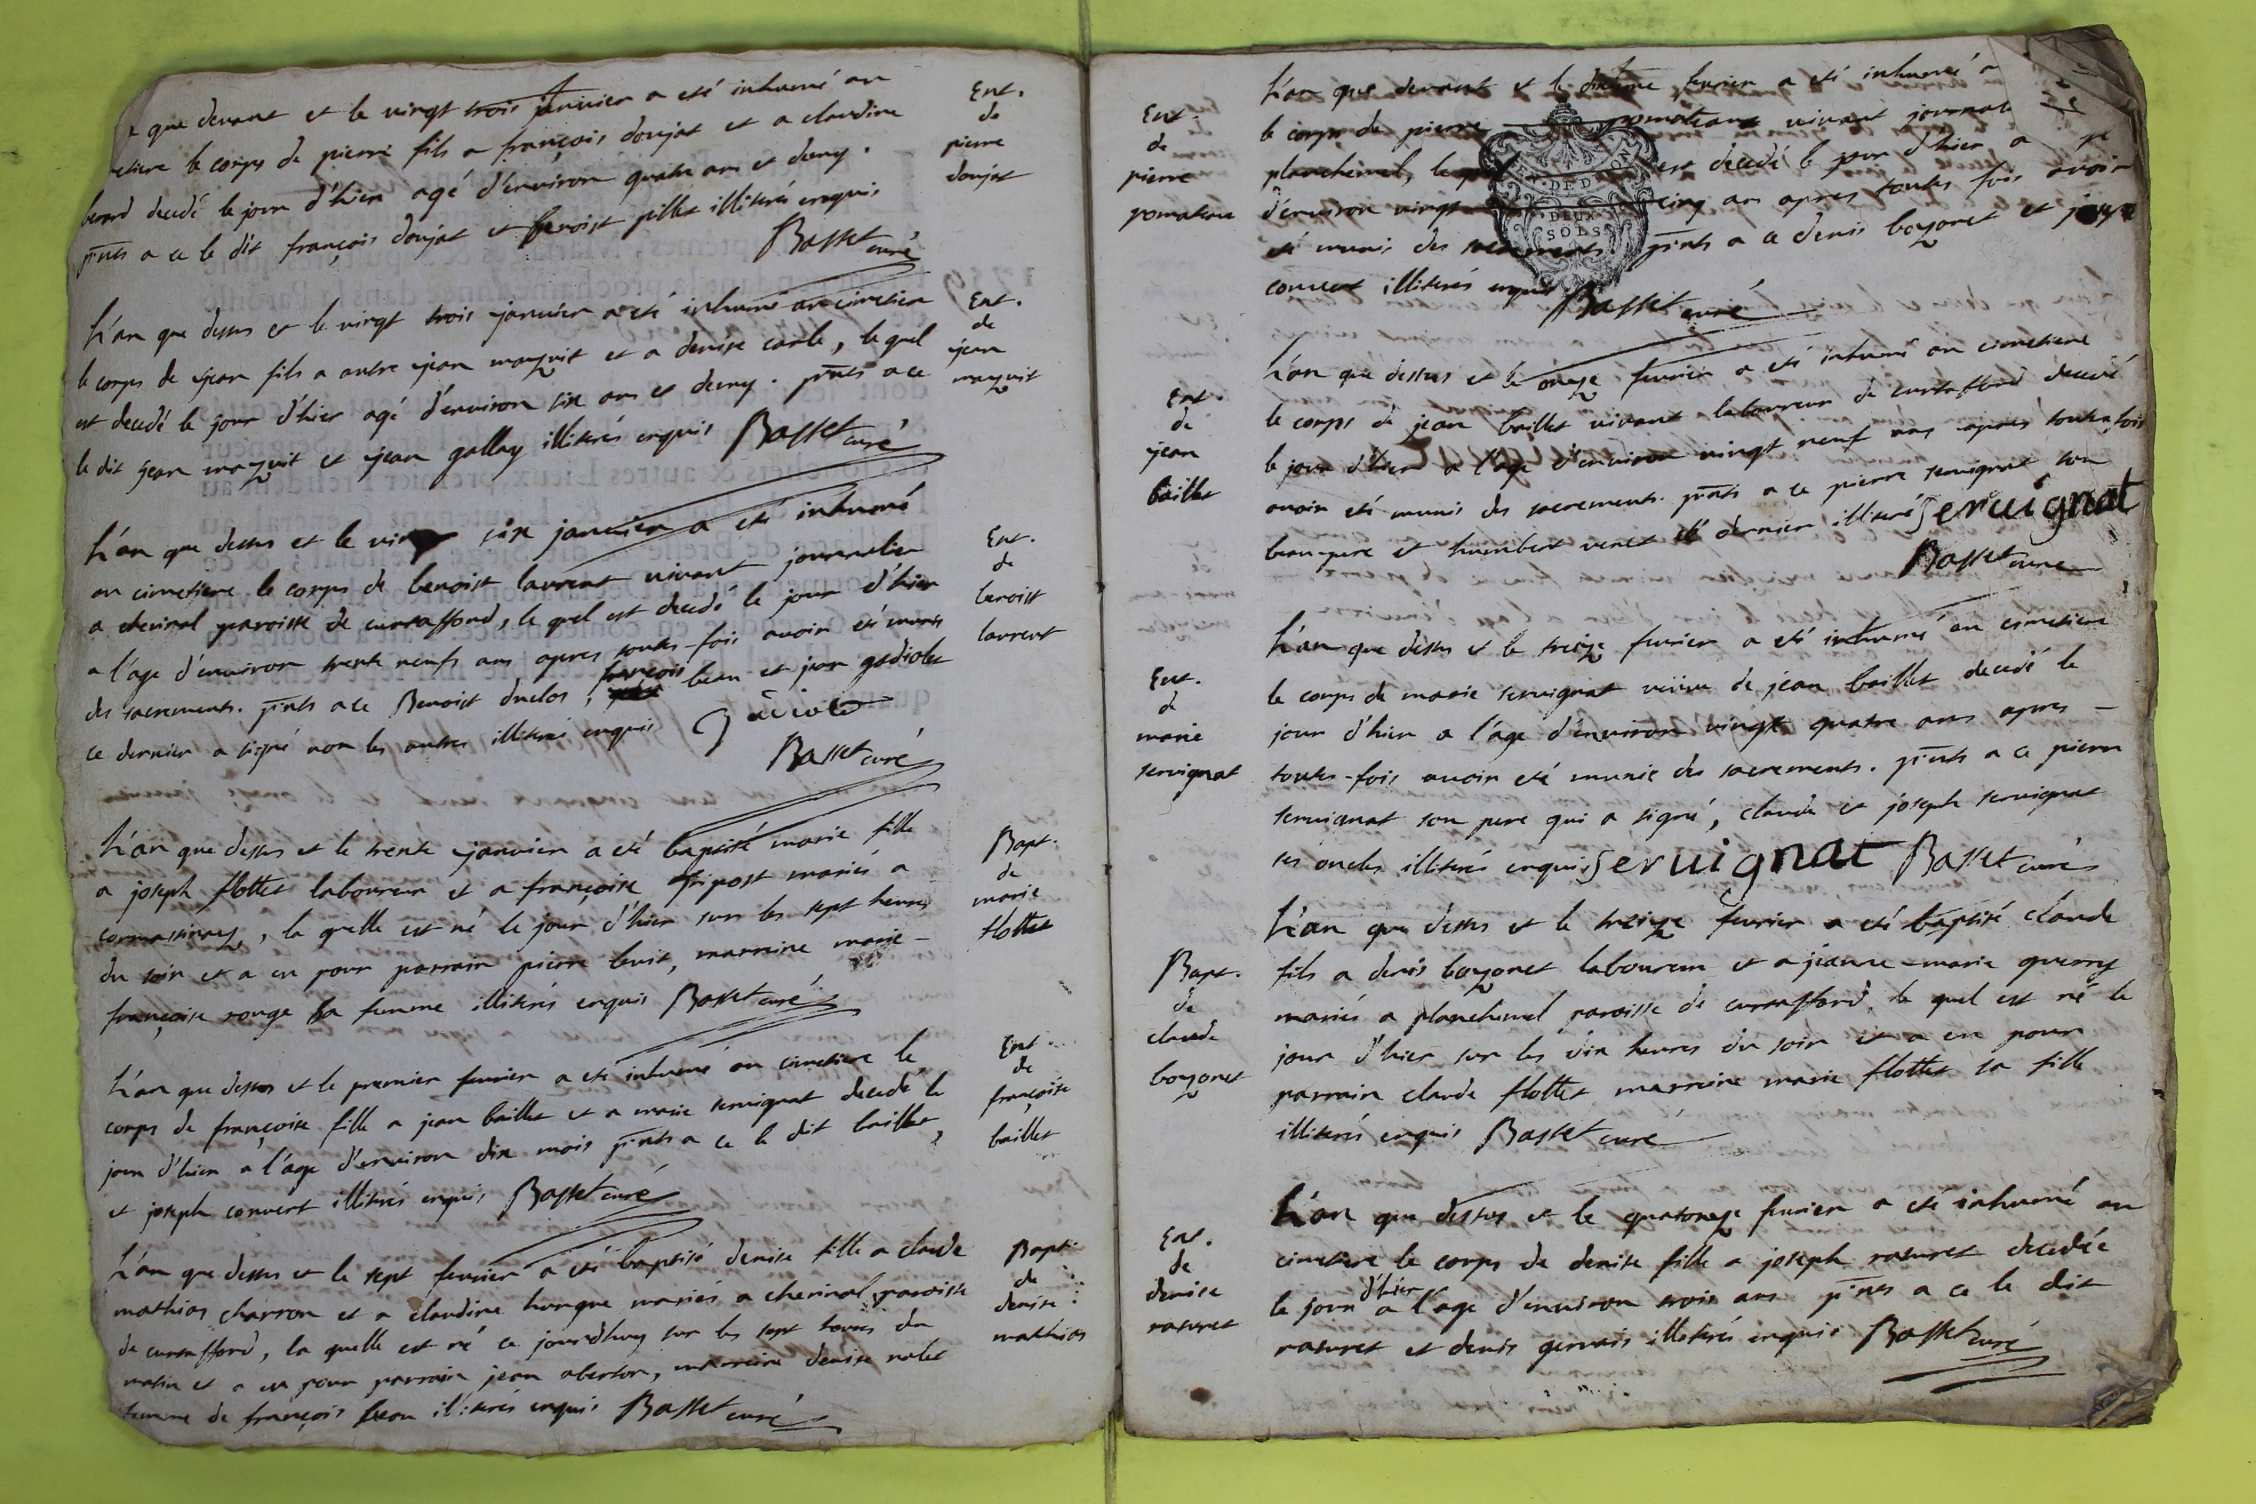 que devant et le vingt trois janvier a eté inhumé au
le corps de pierre fils a françois doujat et a claudine
decedé le jour d'hier agé d'environ quatre ans et demy.
pnts a ce le dit françois doujat et benoist pillet illiterés enquis
Basset curé
Ent.
de
pierre
doujat
L'an que dessus et le vingt trois janvier a eté inhumé au cimetiere
le corps de jean fils a autre jean mazuit et a denise carle, le quel
est decedé le jour d'hier agé d'environ six ans et demy. pnts a ce
le dit jean mazuit et jean gallay illiterés enquis Basset curé
Ent.
de
jean
mazuit
L'an que dessus et le six janvier a eté inhumé
au cimetiere le corps de benoist laurent vivant journalier
a cheviral paroisse de curtaffond, le quel est decedé le jour d'hier
a l'age d'environ trente neufs ans apres toutes-fois avoir eté munis
des sacrements. pnts a ce Benoist duclos, françois beau et jean gediolet
ce dernier a signé non les autres illiterés enquis
Basset curé
Ent.
de
benoist
laurent
L'an que dessus et le trente janvier a eté baptisé marie fille
a joseph flottet laboureur et a françoise mariés a
, la quelle est né le jour d'hier sur les sept heures
du soir et a eu pour parrain pierre buit, marreine marie-
françoise rouge sa femme illiterés enquis Basset curé
Bapt.
de
marie
flottet
L'an que dessus et le premier fevrier a eté inhumé au cimetiere le
corps de françoise fille a jean baillet et a marie servignat decedé le
jour d'hier a l'age d'environ dix mois pnts a ce le dit baillet,
et joseph convert illiterés enquis Basset curé
Ent.
de
françoise
baillet
L'an que dessus et le sept fevrier a eté baptisé denise fille a claude
mathias charron et a claudine mariés a cheviral paroisse
de curtaffond, la quelle est né ce jourdhuy sur les sept heures du
matin et a eu pour parrain jean aberton, marreine denise
femme de françois beau illiterés enquis Basset curé
Bapt.
de
denise
mathias
L'an que devant et le dixieme fevrier a eté inhumé a
le corps de pierre pomateau vivant journal
planchemel, le est decedé le jour d'hier a
d'environ vingt cinq ans apres toutes fois avoir
eté munis des sacrements pnts a ce denis bozonet et
convert illiterés enquis Basset curé
Ent.
de
pierre
pomateau
DEUX
SOLS
L'an que dessus et le onze fevrier a eté inhumé au cimetiere
le corps de jean baillet vivant laboureur de curtaffond decedé
le jour d'hier a l'age d'environ vingt neuf ans apres toutes fois
avoir eté munis des sacrements. pnts a ce pierre servignat son
beau-pere et humbert venet dernier illiteré servignat
Basset curé
Ent.
de
jean
baillet
L'an que dessus et le treize fevrier a eté inhumé au cimetiere
le corps de marie servignat veuve de jean baillet decedé le
jour d'hier a l'age d'environ vingt quatre ans apres -
toutes-fois avoir eté munie des sacrements. pnts a ce pierre
servignat son pere qui a signé, claude et joseph servignat
ses oncles illiterés enquis servignat Basset curé
Ent.
de
marie
servignat
L'an que dessus et le treize fevrier a eté baptisé claude
fils a denis bozonet laboureur et a jeanne-marie querry
mariés a planchemel paroisse de curtaffond, le quel est né le
jour d'hier sur les dix heures du soir et a eu pour
parrain claude flottet marreine marie flottet sa fille
illiterés enquis Basset curé
Bapt.
de
claude
bozonet
L'an que dessus et le quatorze fevrier a eté inhumé au
cimetiere le corps de denise fille a joseph raturet decedée
le jour d'hier a l'age d'environ trois ans pnts a ce le dit
raturet et denis gervais illiterés enquis Basset curé
Ent.
de
denise
raturet